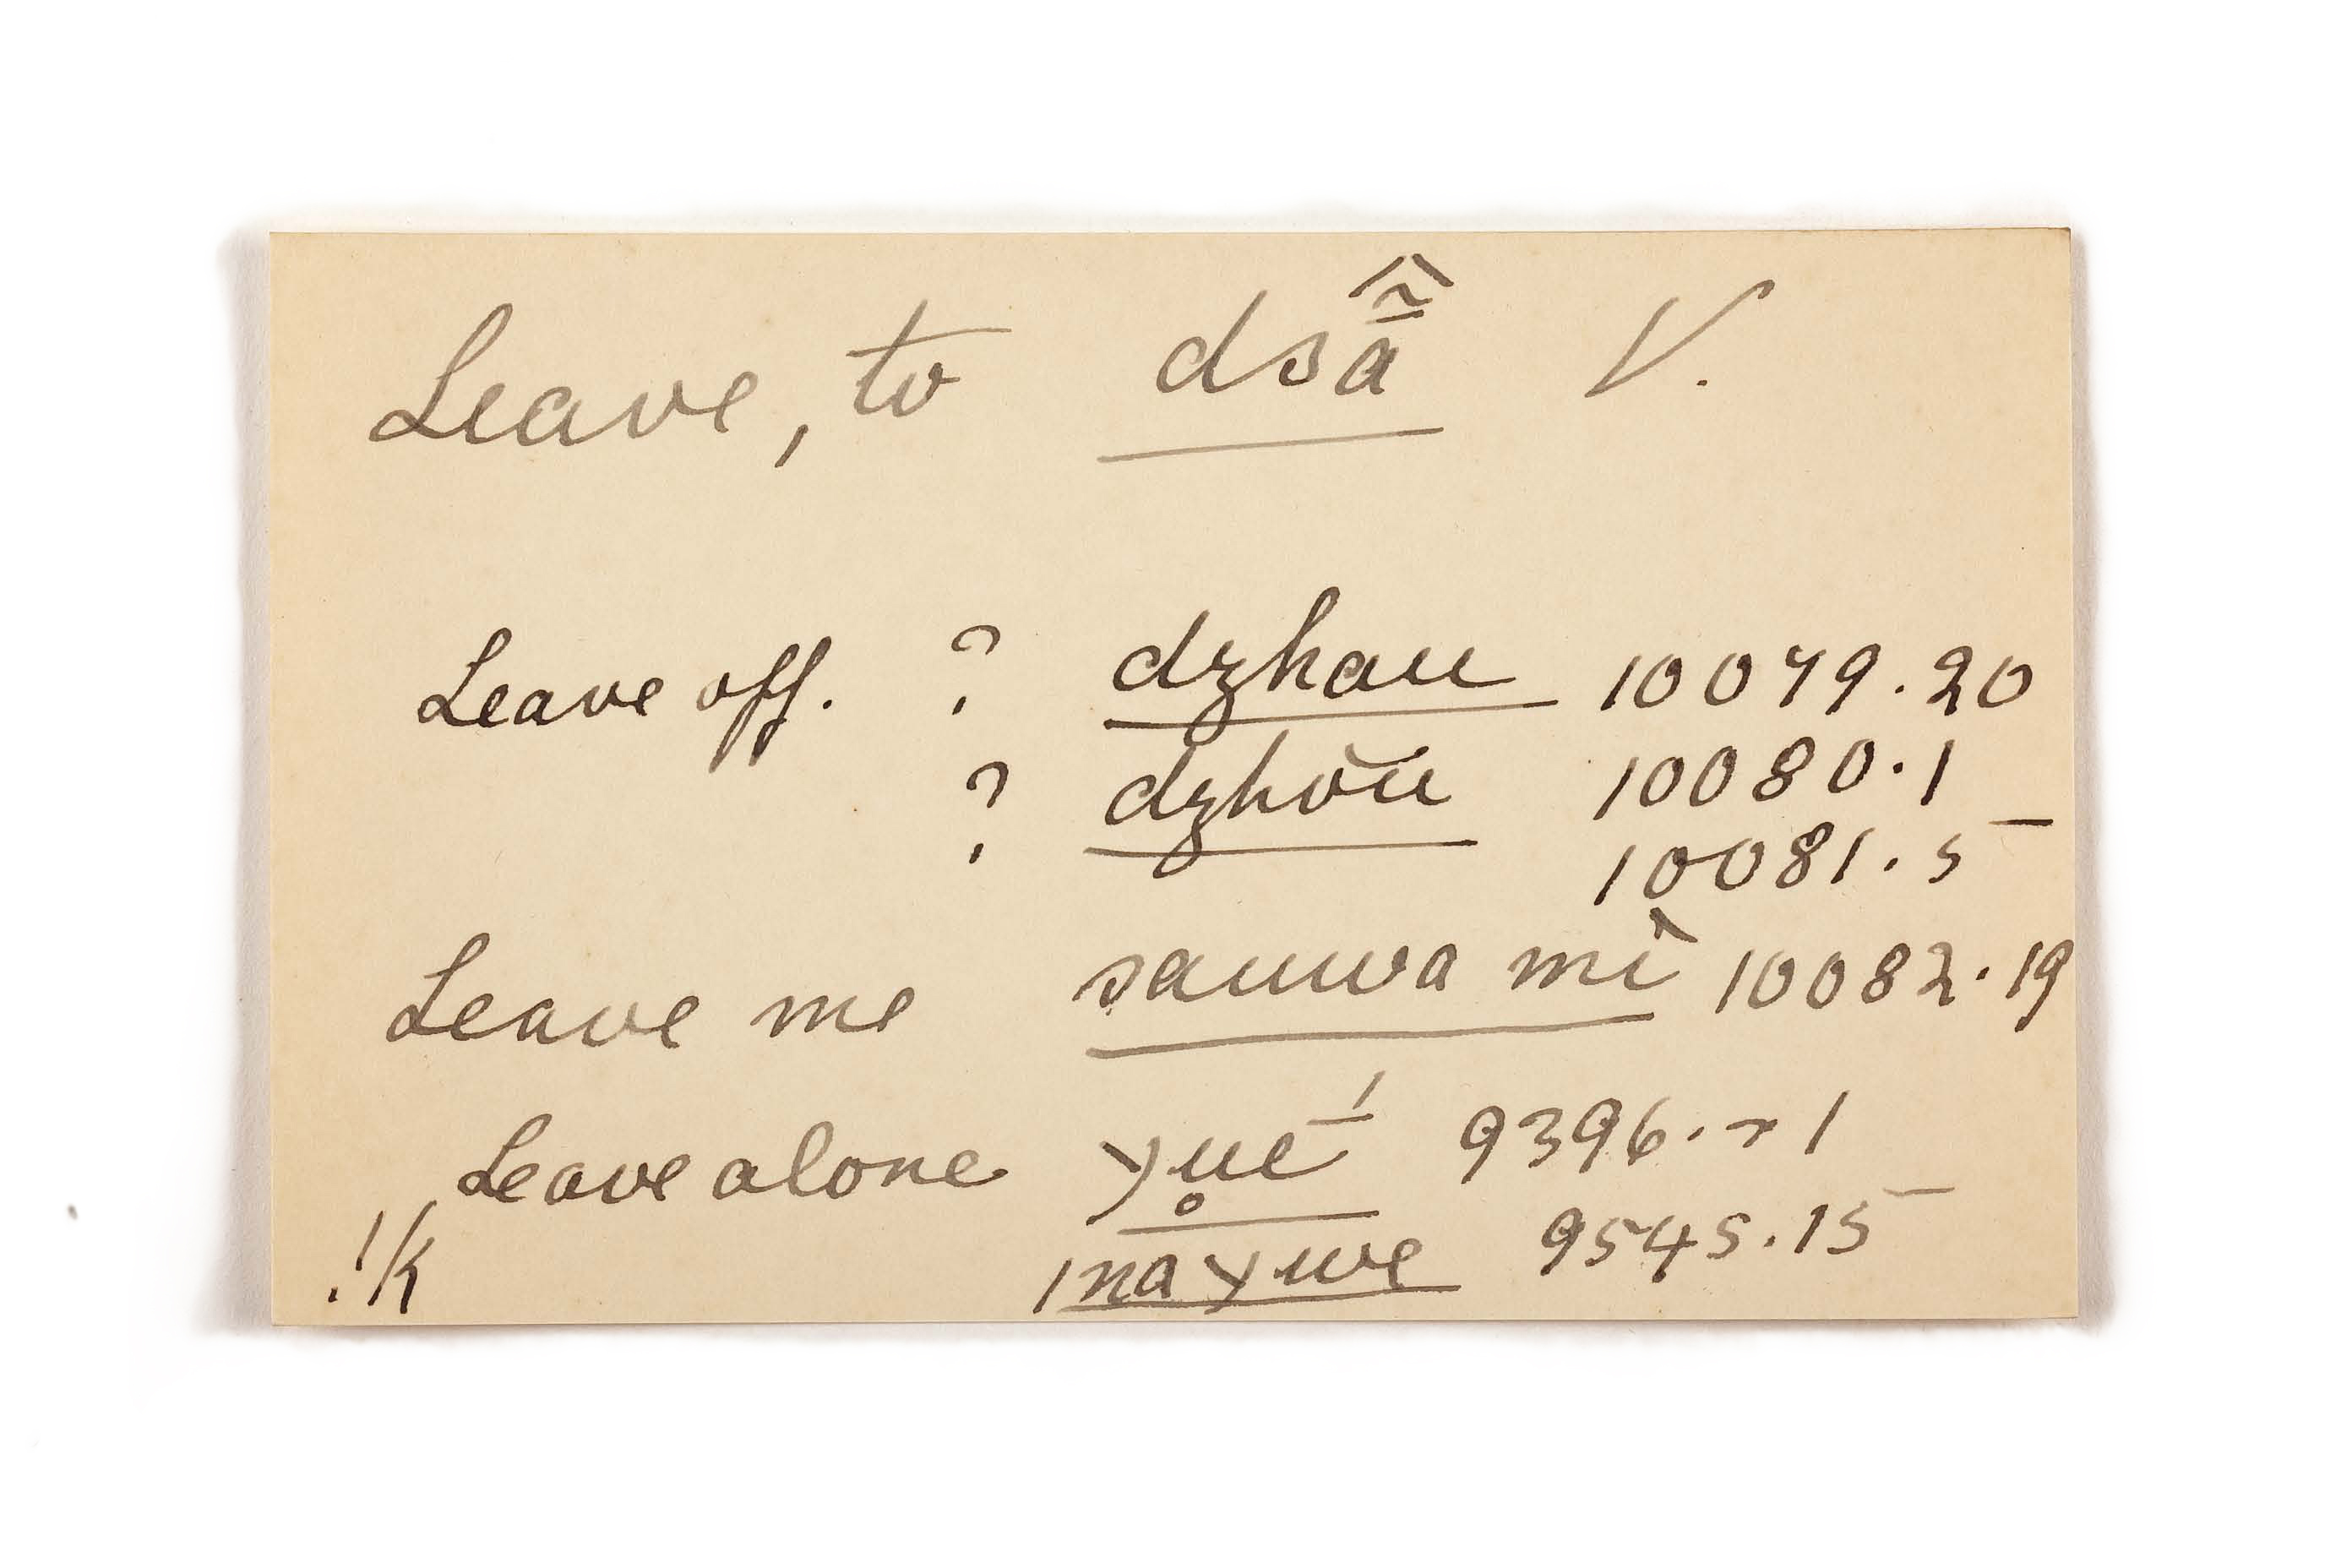 Leave, to dsā̰̂ V.
Leave off. ? dzhau 10079.20
? dzhŏü 10080.1
10081.5
Leave me sauwa mì 10082.19
Leave alone χu̥ḗ 9396.-1
!k ınaχwe 9545.15